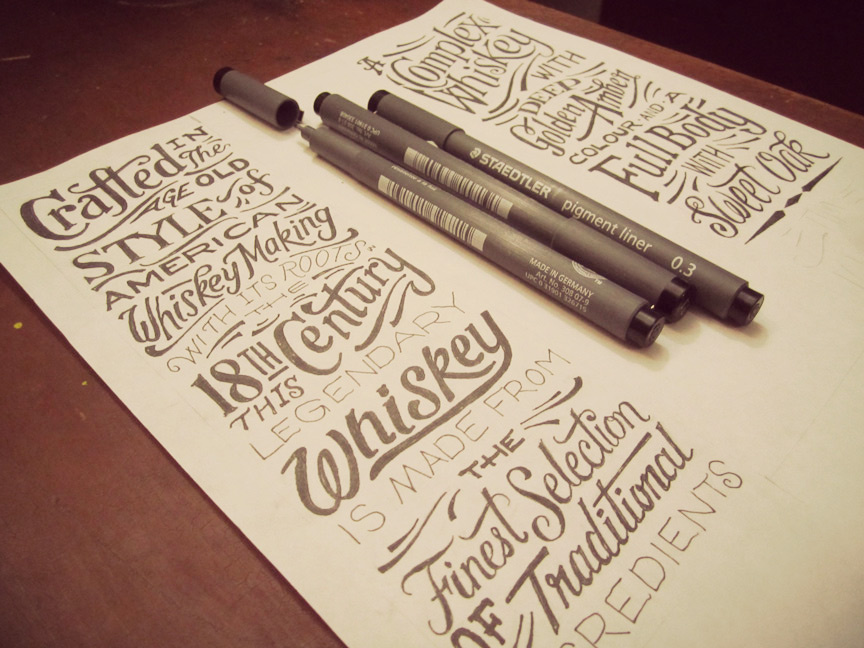 Crafted IN
The
AGE OLD
STYLE of
AMERICAN
Whiskey Making
WITH ITS ROOTS
IN THE
18TH Century
THIS
LEGENDARY
Whiskey
IS MADE FROM
THE
Finest Selection
OF Traditional
A Complex
Whiskey
WITH
DEEP
Golden Amber
COLOUR AND A
Full Body
WITH
Sweet Oak
STAEDTLER pigment liner 0.3
MADE IN GERMANY
Art. No. 308 07-9